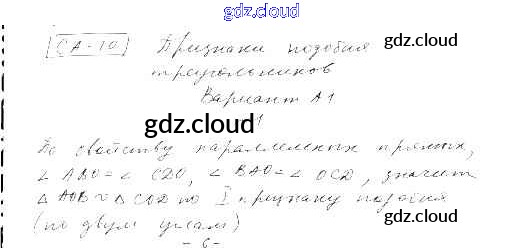 gdz.cloud
СА-10 Признаки подобия
gdz.cloud
треугольников
Вариант А1
gdz.cloud
1
По свойству параллельных прямых,
∠ ABO = ∠ CDO, ∠ BAO = ∠ OCD, значит
△ AOB ∾ △ COD по I признаку подобия
(по двум углам)
gdz.cloud
- 6 -